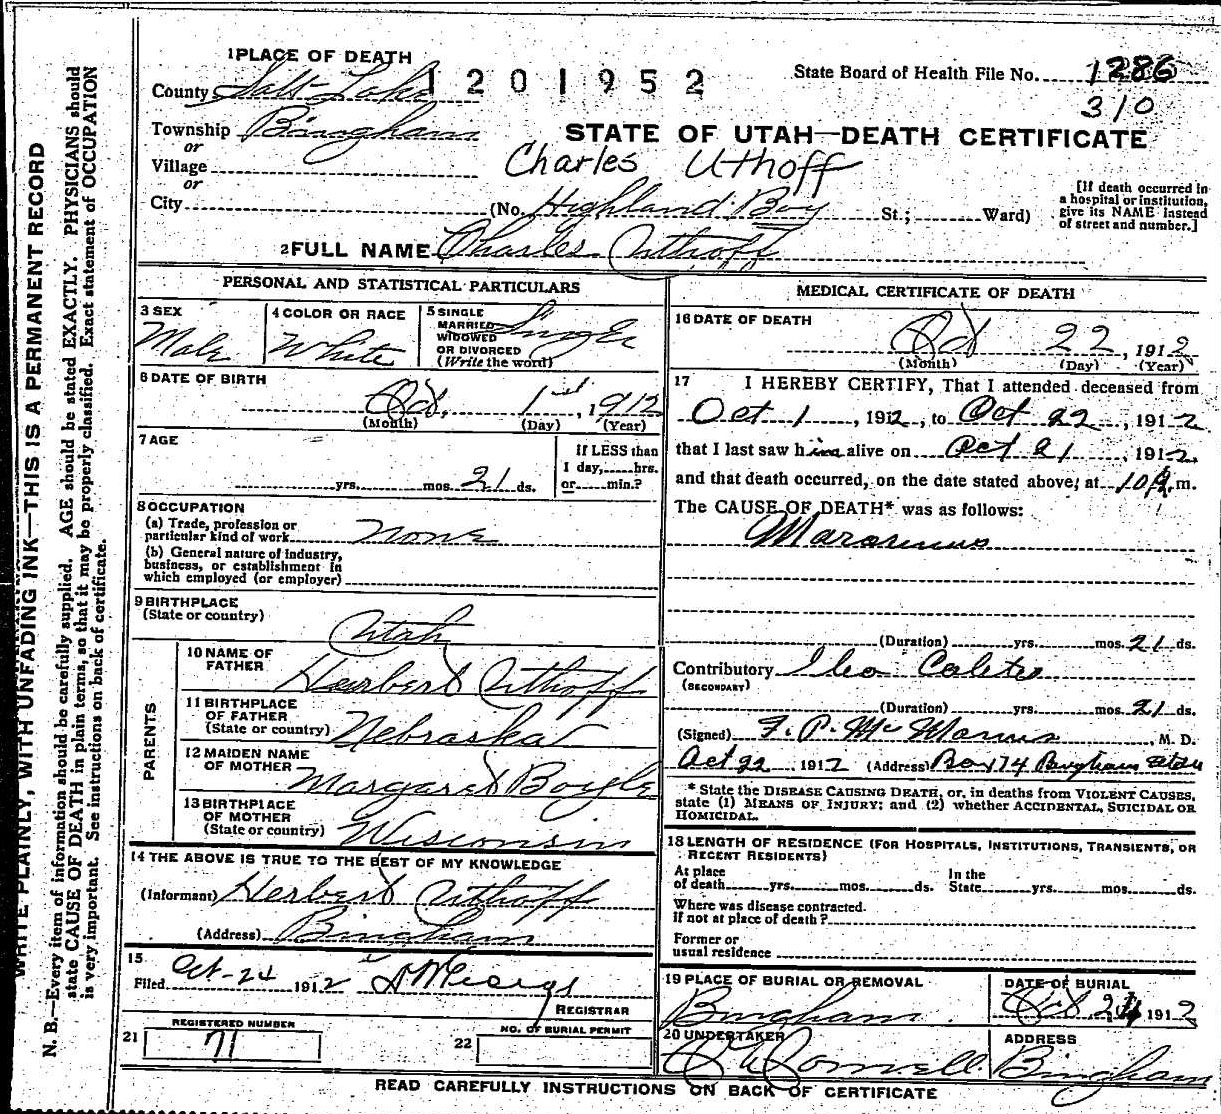 1 PLACE OF DEATH
County Salt Lake
1 2 0 1 9 5 2
State Board of Health File No. 1286
310
Township Bingham
or
Village
or
City
STATE OF UTAH—DEATH CERTIFICATE
Charles Uthoff
(No. Highland Boy St.; Ward)
[If death occurred in a hospital or institution, give its NAME instead of street and number.]
2 FULL NAME Charles Uthoff
PERSONAL AND STATISTICAL PARTICULARS
3 SEX
Male
4 COLOR OR RACE
White
5 SINGLE
MARRIED
WIDOWED
OR DIVORCED
(Write the word)
Single
6 DATE OF BIRTH
Oct. 1st, 1912
(Month) (Day) (Year)
7 AGE
yrs. mos. 21 ds.
If LESS than
1 day, hrs.
or min.?
8 OCCUPATION
(a) Trade, profession or
particular kind of work None
(b) General nature of industry,
business, or establishment in
which employed (or employer)
9 BIRTHPLACE
(State or country)
Utah
PARENTS
10 NAME OF
FATHER
Herbert Uthoff
11 BIRTHPLACE
OF FATHER
(State or country) Nebraska
12 MAIDEN NAME
OF MOTHER
Margaret Boyle
13 BIRTHPLACE
OF MOTHER
(State or country) Wisconsin
14 THE ABOVE IS TRUE TO THE BEST OF MY KNOWLEDGE
(Informant) Herbert Uthoff
(Address) Bingham
15
Filed Oct-24 1912
REGISTRAR
21 REGISTERED NUMBER
71
22 NO. OF BURIAL PERMIT
MEDICAL CERTIFICATE OF DEATH
16 DATE OF DEATH
Oct 22, 1912
(Month) (Day) (Year)
17 I HEREBY CERTIFY, That I attended deceased from
Oct 1, 1912, to Oct 22, 1912
that I last saw him alive on Oct 21, 1912
and that death occurred, on the date stated above, at 10 m.
The CAUSE OF DEATH* was as follows:
Marasmus
(Duration) yrs. mos. 21 ds.
Contributory Ileo Colitis
(SECONDARY)
(Duration) yrs. mos. 21 ds.
(Signed) F. P. McManus, M. D.
Oct 22 1912 (Address) Box 174 Bingham Utah
* State the DISEASE CAUSING DEATH, or, in deaths from VIOLENT CAUSES,
state (1) MEANS OF INJURY; and (2) whether ACCIDENTAL, SUICIDAL OR
HOMICIDAL.
18 LENGTH OF RESIDENCE (FOR HOSPITALS, INSTITUTIONS, TRANSIENTS, OR
RECENT RESIDENTS)
At place
of death yrs. mos. ds.
In the
State yrs. mos. ds.
Where was disease contracted.
if not at place of death?
Former or
usual residence
19 PLACE OF BURIAL OR REMOVAL
Bingham
DATE OF BURIAL
Oct 24 1912
20 UNDERTAKER
O'Donnell
ADDRESS
Bingham
READ CAREFULLY INSTRUCTIONS ON BACK OF CERTIFICATE
WRITE PLAINLY, WITH UNFADING INK—THIS IS A PERMANENT RECORD
N. B.—Every item of information should be carefully supplied. AGE should be stated EXACTLY. PHYSICIANS should
state CAUSE OF DEATH in plain terms, so that it may be properly classified. Exact statement of OCCUPATION
is very important. See instructions on back of certificate.